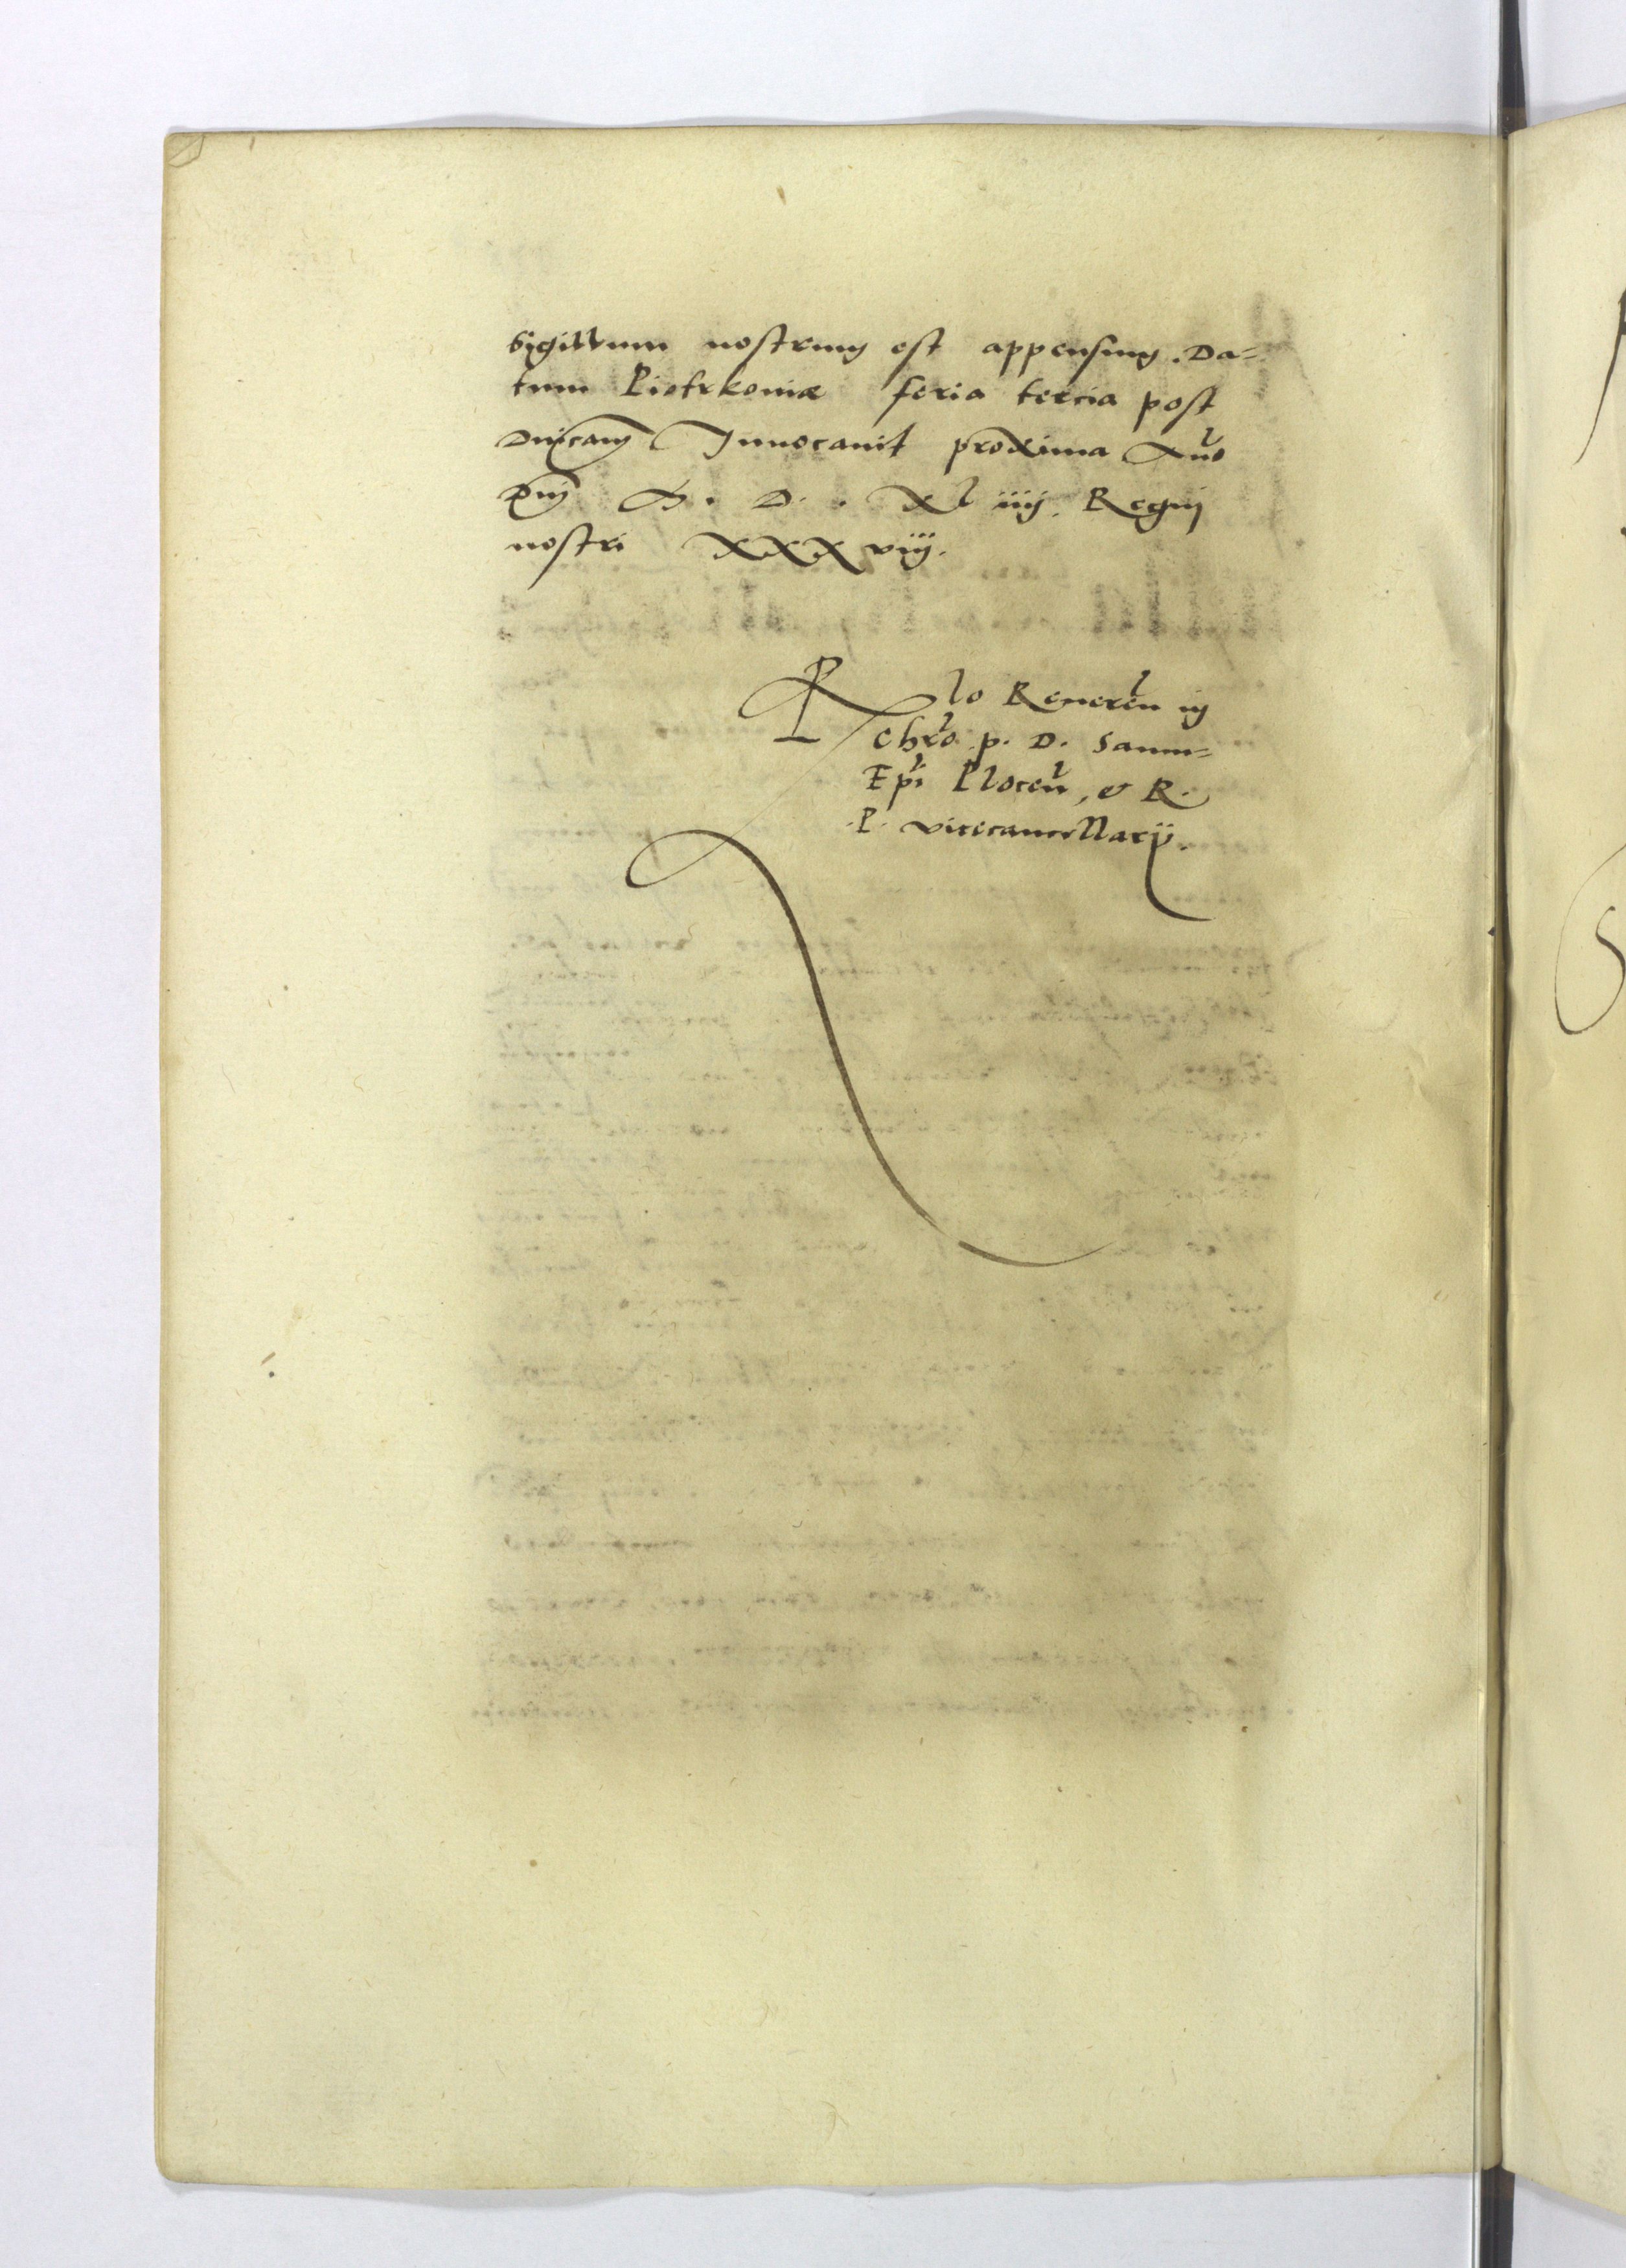 Sigillum nostrum est appensum. Da=
tum Piotrkoviæ feria tercia post
Dnicam Invocavit proxima Anno
Dnj M. D. . XL iiij. Regnj
nostri XXX viij.
Rlo Reveren in
Chro p. D. Samu=
Epi Plocen, et R.
.P. vicecancellarij.